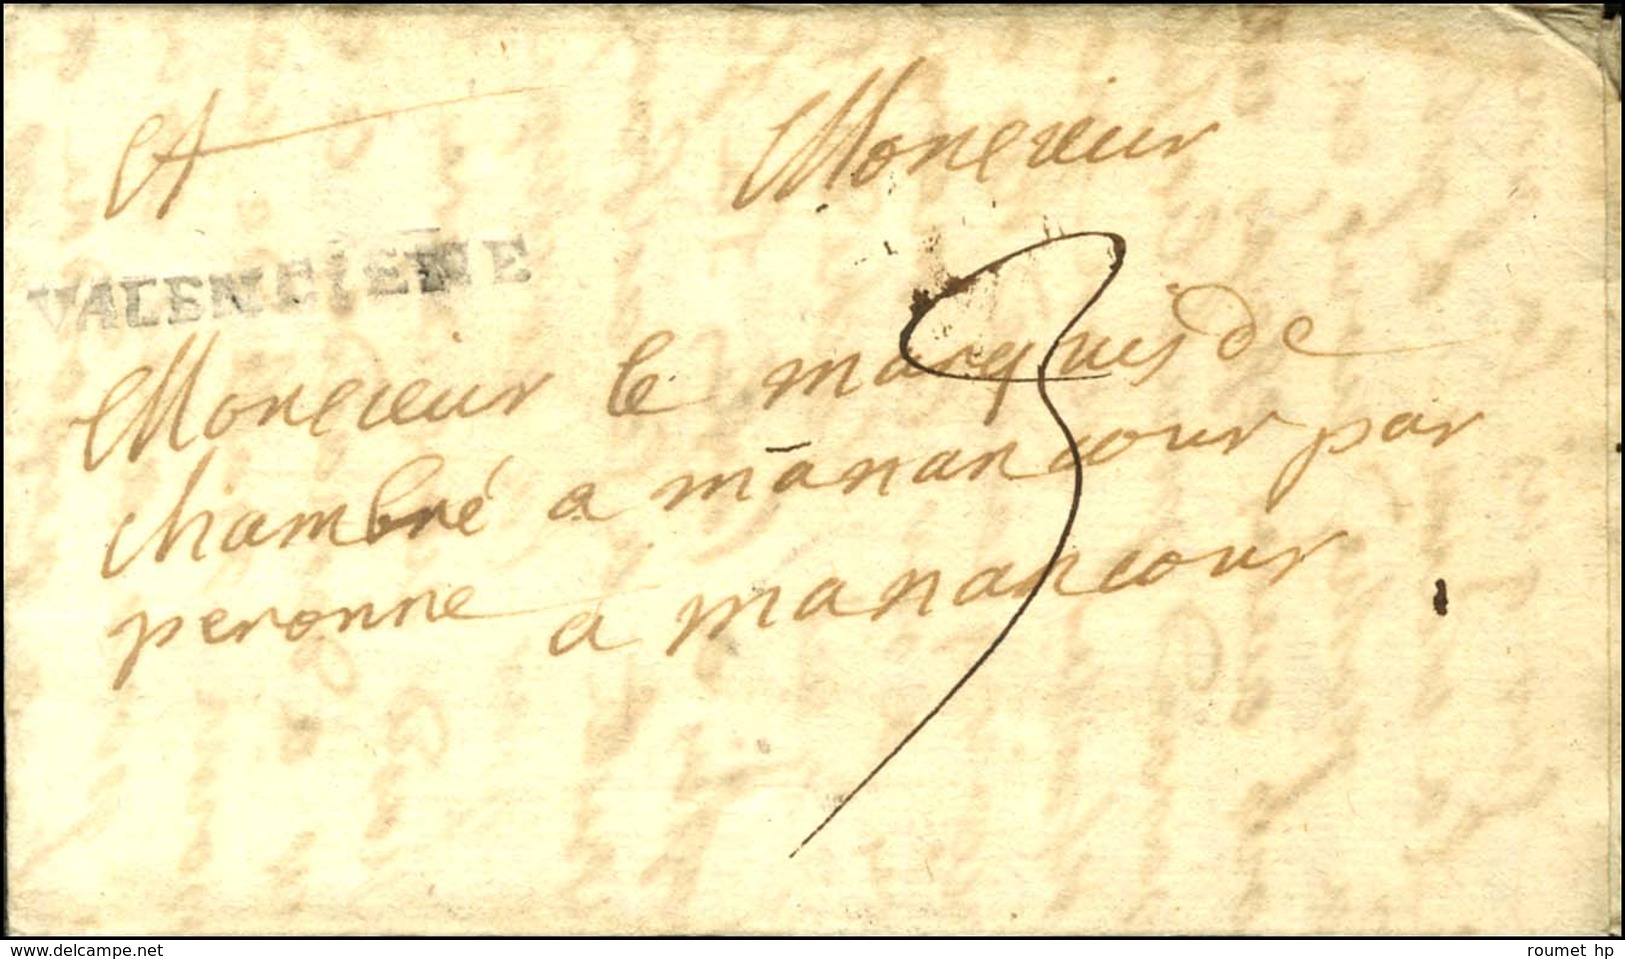 A Monsieur
VALENCIENE
Monsieur le marquis de
3
chambré a manancour par
peronne a manancour
delcampe.net
roumet hp